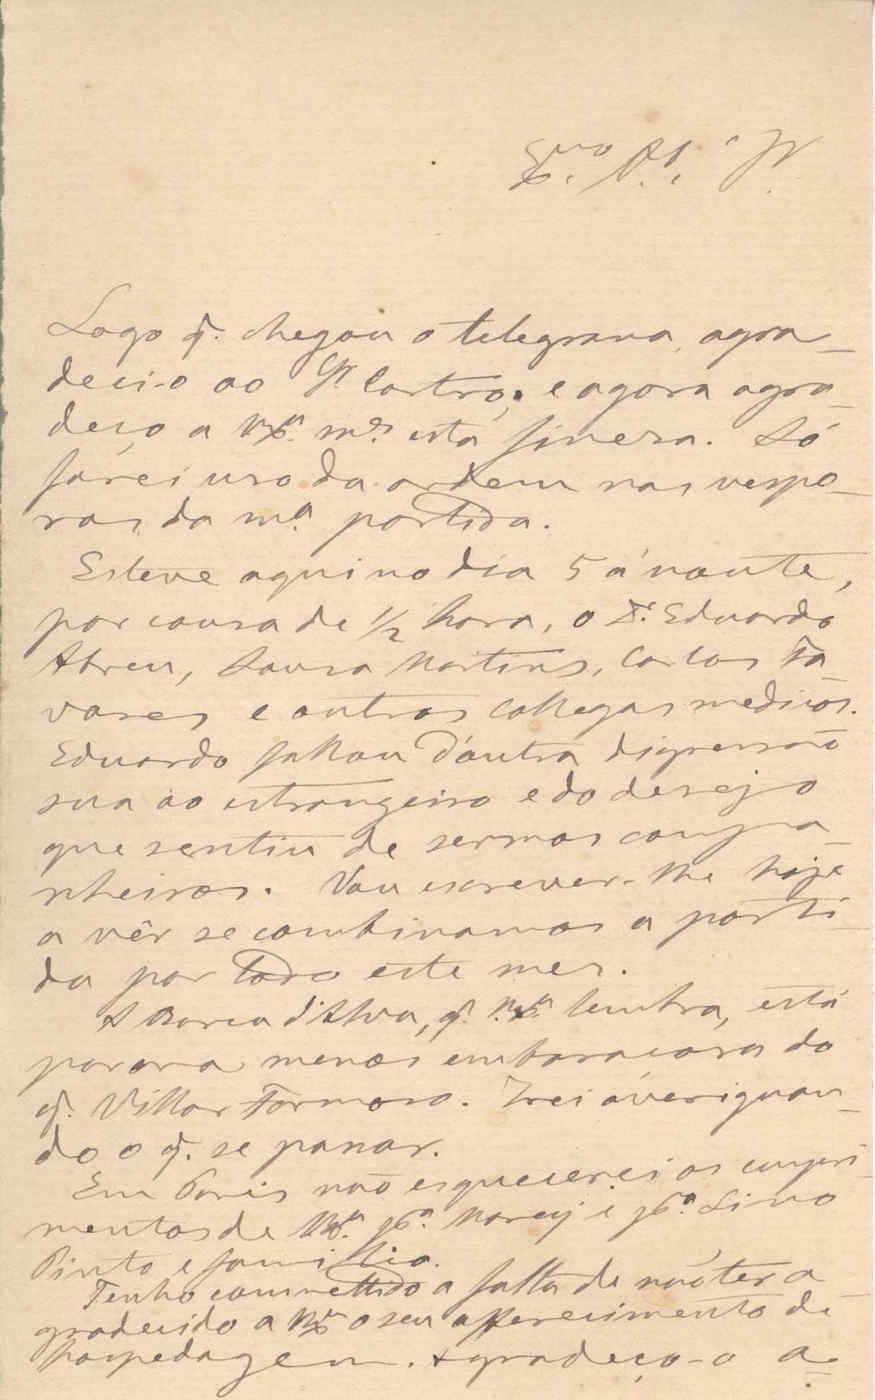 Ex.mo
Logo q. chegou o telegrama, agra-
deci-o ao Sr. Castro, e agora agra-
deço a V. Ex.a m.to esta fineza. Só
farei uso da ordem nas vespe-
ras da m.a partida.
Esteve aqui no dia 5 á noute,
por cousa de 1/2 hora, o Dr. Eduardo
Abreu, Sousa Martins, Carlos Ta
vares e outros collegas medicos.
Eduardo fallou d'outra digressão
sua ao estrangeiro e do desejo
que sentiu de sermos compa-
nheiros. Vou escrever-lhe hoje
a vêr se combinamos a parti-
da por todo este mez.
A Barca d'Alva, q. V. Ex.a lembra, está
por ora menos embaraçosa do
q. Villar Formoso. Irei áveriguan-
do o q. se passar.
Em Paris não esquecerei os cumpri-
mentos de V. Ex.a p.a e p.a Lino
Pinto e familia.
Tenho comettido a falta de não ter a
gradecido a V. Ex.a o seu offerecimento de
hospedagem. Agradeço-o a-